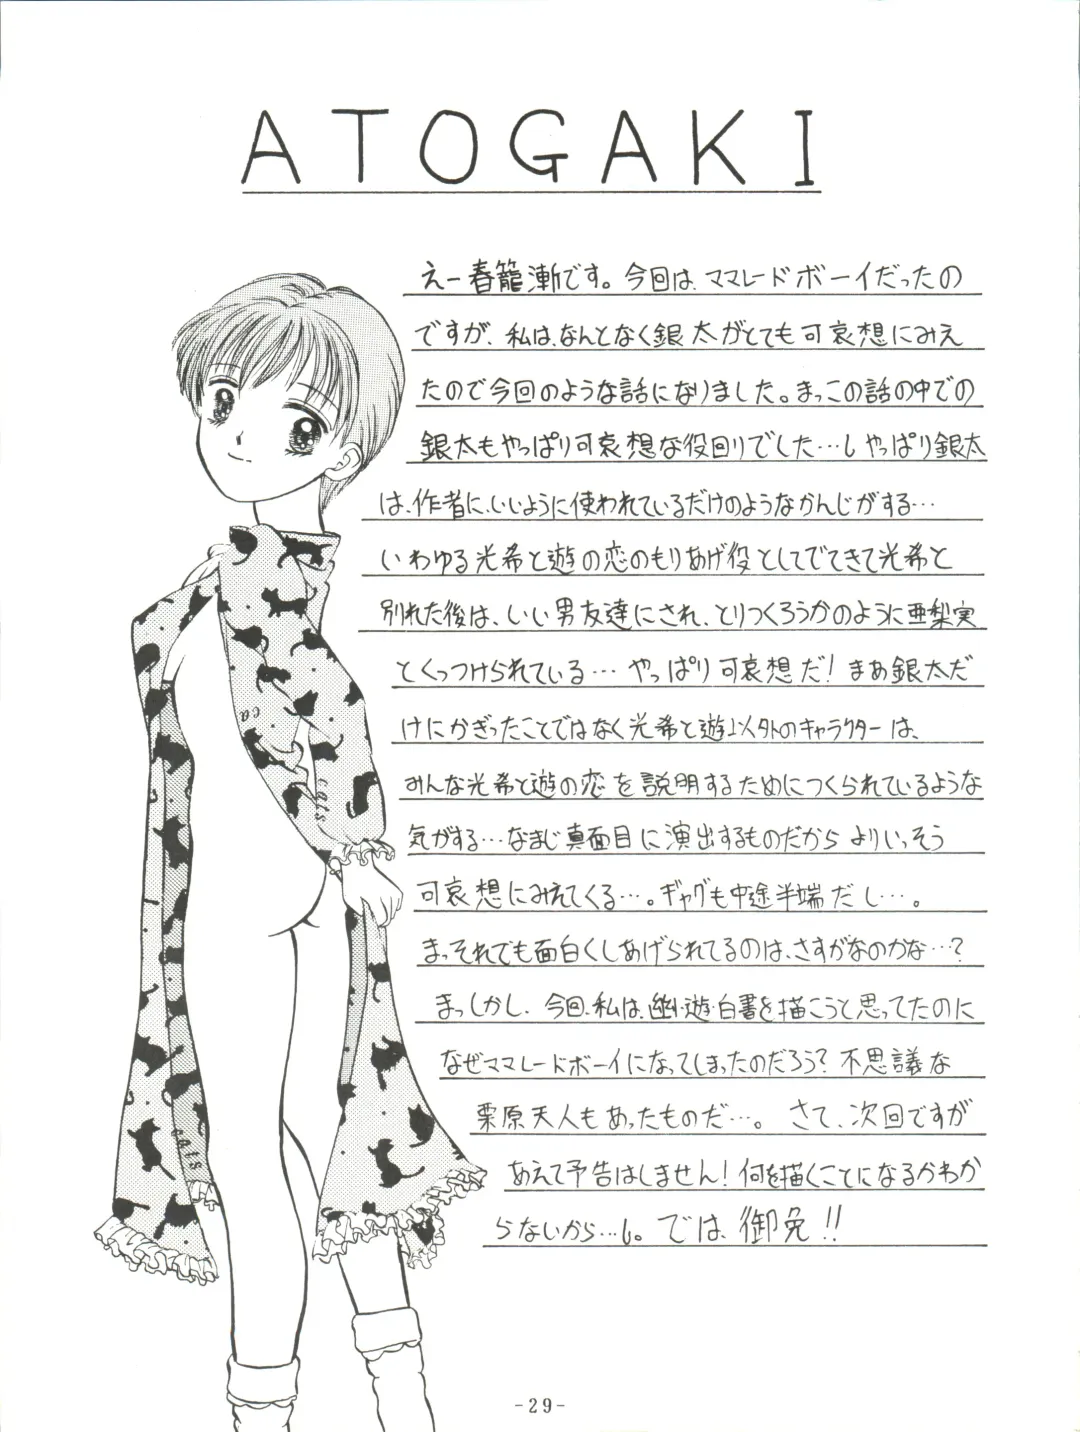 ATOGAKI
えー春籠漸です。今回は、ママレードボーイだったの
ですが、私は、なんとなく銀太がとても可哀想にみえ
たので今回のような話になりました。まっこの話の中での
銀太もやっぱり可哀想な役回りでした…しやっぱり銀太
は、作者に、いいように使われているだけのようなかんじがする…
いわゆる光希と遊の恋のもりあげ役としてでてきて光希と
別れた後は、いい男友達にされ、とりつくろうかのように亜梨実
とくっつけられている…やっぱり可哀想だ!まあ銀太だ
けにかぎったことではなく光希と遊以外のキャラクターは、
みんな光希と遊の恋を説明するためにつくられているような
気がする…なまじ真面目に演出するものだからよりいっそう
可哀想にみえてくる…。ギャグも中途半端だし…。
まっそれでも面白くしあげられてるのは、さすがなのかな…?
まっしかし、今回、私は、幽・遊・白書を描こうと思ってたのに
なぜママレードボーイになってしまったのだろう?不思議な
栗原天人もあったものだ…。さて、次回ですが
あえて予告はしません!何を描くことになるかわか
らないから…し。では、御免!!
ca
cats
cats
-29-